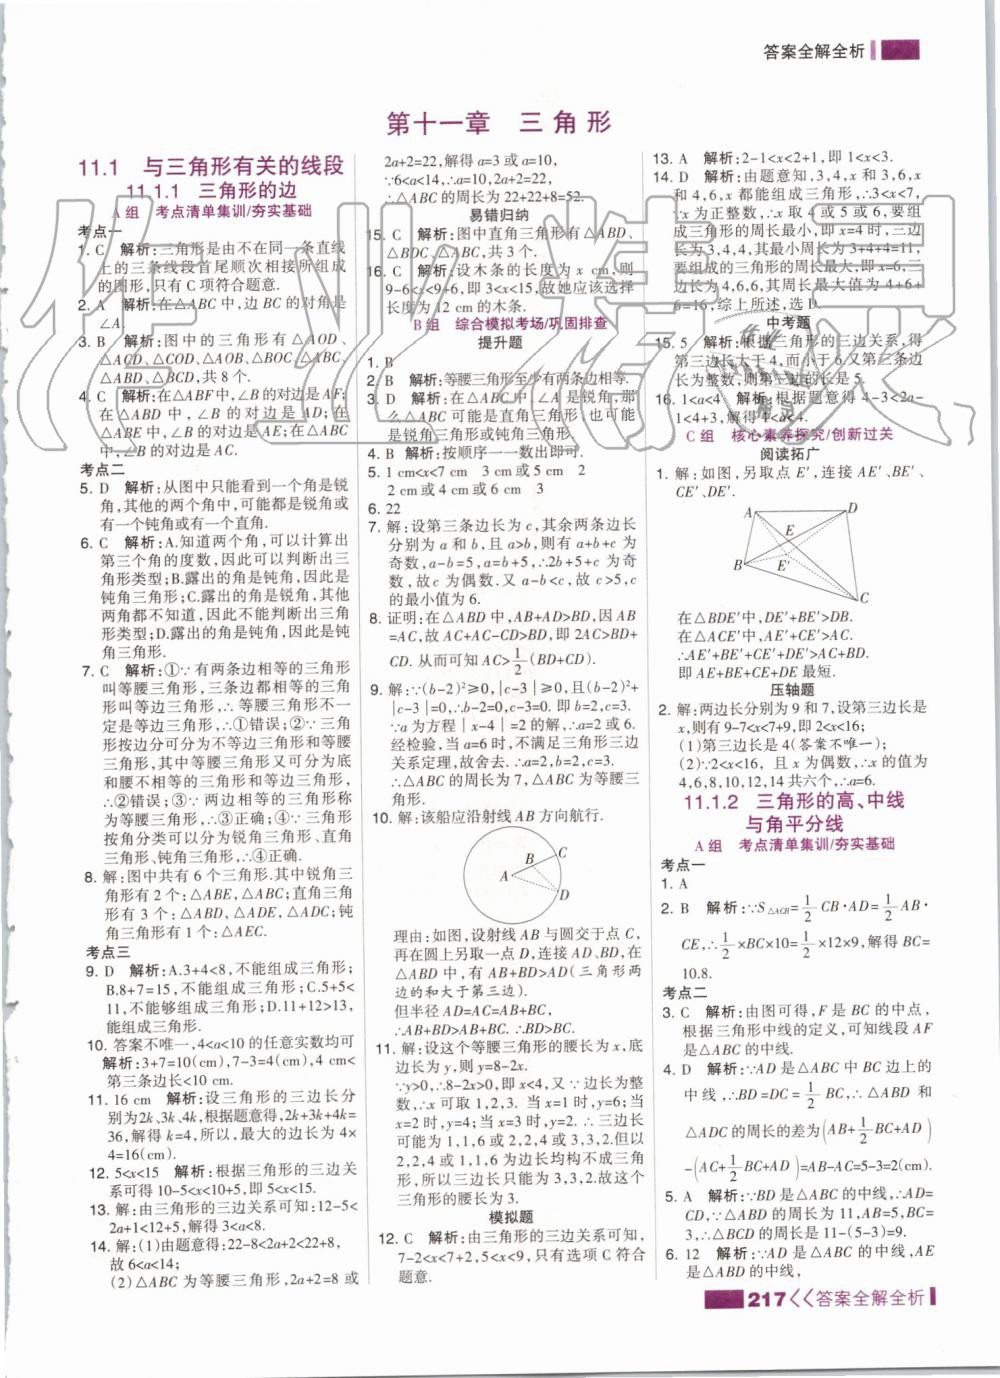 答案全解全析
第十一章 三角形
11.1 与三角形有关的线段
11.1.1 三角形的边
A组 考点清单集训/夯实基础
考点一
1. C 解析:三角形是由不在同一条直线
上的三条线段首尾顺次相接所组成
的图形,只有C项符合题意.
2. A 解析:在△ABC中,边BC的对角是
∠A.
3. B 解析:图中的三角形有△AOD、
△AOC、△COD、△AOB、△BOC、△ABC、
△ABD、△BCD,共8个.
4. C 解析:在△ABF中,∠B的对边是AF;
在△ABD中,∠B的对边是AD;在
△ABE中,∠B的对边是AE;在△ABC
中,∠B的对边是AC.
考点二
5. D 解析:从图中只能看到一个角是锐
角,其他的两个角中,可能都是锐角或
有一个钝角或有一个直角.
6. C 解析:A.知道两个角,可以计算出
第三个角的度数,因此可以判断出三
角形类型;B.露出的角是钝角,因此是
钝角三角形;C.露出的角是锐角,其他
两角都不知道,因此不能判断出三角
形类型;D.露出的角是钝角,因此是钝
角三角形.
7. C 解析:①∵有两条边相等的三角形
叫等腰三角形,三条边都相等的三角
形叫等边三角形,∴等腰三角形不一
定是等边三角形,∴①错误;②∵三角
形按边分可分为不等边三角形和等腰
三角形,其中等腰三角形又可分为底
和腰不相等的三角形和等边三角形,
∴②错误;③∵两边相等的三角形称
为等腰三角形,∴③正确;④∵三角形
按角分类可以分为锐角三角形、直角
三角形、钝角三角形,∴④正确.
8. 解:图中共有6个三角形.其中锐角三
角形有2个:△ABE,△ABC;直角三角
形有3个:△ABD,△ADE,△ADC;钝
角三角形有1个:△AEC.
考点三
9. D 解析:A.3+4<8,不能组成三角形;
B.8+7=15,不能组成三角形;C.5+5<
11,不能够组成三角形;D.11+12>13,
能组成三角形.
10. 答案不唯一,4<a<10的任意实数均可
解析:3+7=10(cm),7-3=4(cm),4 cm<
第三条边长<10 cm.
11. 16 cm 解析:设三角形的三边长分
别为2k、3k、4k,根据题意得,2k+3k+4k=
36,解得k=4,所以,最大的边长为4×
4=16(cm).
12. 5<x<15 解析:根据三角形的三边关
系可得10-5<x<10+5,即5<x<15.
13. 解:由三角形的三边关系可知:12-5<
2a+1<12+5,解得3<a<8.
14. 解:(1)由题意得:22-8<2a+2<22+8,
故6<a<14;
(2)△ABC为等腰三角形,2a+2=8或
2a+2=22,解得a=3或a=10,
∵6<a<14,∴a=10,2a+2=22.
∴△ABC的周长为22+22+8=52.
易错归纳
15. C 解析:图中直角三角形有△ABD、
△BDC、△ABC,共3个.
16. C 解析:设木条的长度为x cm,则
9-6<x<9+6,即3<x<15,故她应该选择
长度为12 cm的木条.
B组 综合模拟考场/巩固排查
提升题
1. B
2. B 解析:等腰三角形至少有两条边相等.
3. D 解析:在△ABC中,∠A是锐角,那
么△ABC可能是直角三角形,也可能
是锐角三角形或钝角三角形.
4. B 解析:按顺序一一数出即可.
5. 1 cm<x<7 3 cm或5 cm 2
2 cm或4 cm或6 cm 3
6. 22
7. 解:设第三条边长为c,其余两条边长
分别为a和b,且a>b,则有a+b+c为
奇数,a-b=5,a=b+5,∴2b+5+c为
奇数,故c为偶数.又a-b<c,故c>5,c
的最小值为6.
8. 证明:在△ABD中,AB+AD>BD,因AB
=AC,故AC+AC-CD>BD,即2AC>BD+
CD.从而可知AC>1/2(BD+CD).
9. 解:∵(b-2)²≥0,|c-3|≥0,且(b-2)²+
|c-3|=0,∴b-2=0,c-3=0.即b=2,c=3.
∵a为方程|x-4|=2的解,∴a=2或6.
经检验,当a=6时,不满足三角形三边
关系定理,故舍去.∴a=2,b=2,c=3.
∴△ABC的周长为7,△ABC为等腰三
角形.
10. 解:该船应沿射线AB方向航行.
B C
A
D
理由:如图,设射线AB与圆交于点C,
再在圆上另取一点D,连接AD、BD,在
△ABD中,有AB+BD>AD(三角形两
边的和大于第三边).
但半径AD=AC=AB+BC,
∴AB+BD>AB+BC.∴BD>BC.
11. 解:设这个等腰三角形的腰长为x,底
边长为y,则有y=8-2x.
∵y>0,∴8-2x>0,即x<4,又∵边长为
整数,∴x可取1,2,3.当x=1时,y=6;当
x=2时,y=4;当x=3时,y=2.∴三边长
可能为1,1,6或2,2,4或3,3,2.但以
1,1,6和2,2,4为边长均构不成三角
形,所以三边长只能为3,3,2.故这个
三角形的腰长为3.
模拟题
12. C 解析:由三角形的三边关系可知,
7-2<x<7+2,5<x<9,只有选项C符合
题意.
13. A 解析:2-1<x<2+1,即1<x<3.
14. D 解析:由题意知,3,4,x和3,6,x
和4,6,x都能组成三角形,∴3<x<7,
∵x为正整数,∴x取4或5或6,要组
成三角形的周长最小,即x=4时,三边
长为3,4,4,其最小周长为3+4+4=11,
要组成的三角形的周长最大,即x=6,三
边长为4,6,6,其周长最大值为4+6+
6=16,综上所述,选D.
中考题
15. 5 解析:根据三角形的三边关系,得
第三边长大于4,而小于6.又第三条边
长为整数,则第三边的长是5.
16. 1<a<4 解析:根据题意得4-3<2a-
1<4+3,解得1<a<4.
C组 核心素养探究/创新过关
阅读拓广
1. 解:如图,另取点E′,连接AE′、BE′、
CE′、DE′.
A D
E
B E′
C
在△BDE′中,DE′+BE′>DB.
在△ACE′中,AE′+CE′>AC.
∴AE′+BE′+CE′+DE′>AC+BD.
即AE+BE+CE+DE最短.
压轴题
2. 解:两边长分别为9和7,设第三边长是
x,则有9-7<x<7+9,即2<x<16;
(1)第三边长是4(答案不唯一);
(2)∵2<x<16,且x为偶数,∴x的值为
4,6,8,10,12,14共六个,∴a=6.
11.1.2 三角形的高、中线
与角平分线
A组 考点清单集训/夯实基础
考点一
1. A
2. B 解析:∵S△ACB=1/2 CB·AD=1/2 AB·
CE,∴1/2×BC×10=1/2×12×9,解得BC=
10.8.
考点二
3. C 解析:由图可得,F是BC的中点,
根据三角形中线的定义,可知线段AF
是△ABC的中线.
4. D 解析:∵AD是△ABC中BC边上的
中线,∴BD=DC=1/2BC,∴△ABD和
△ADC的周长的差为(AB+1/2BC+AD)
-(AC+1/2BC+AD)=AB-AC=5-3=2(cm).
5. A 解析:∵BD是△ABC的中线,∴AD=
CD,∵△ABD的周长为11,AB=5,BC=
3,∴△BCD的周长是11-(5-3)=9.
6. 12 解析:∵AD是△ABC的中线,AE
是△ABD的中线,
217<<答案全解全析
作业精灵